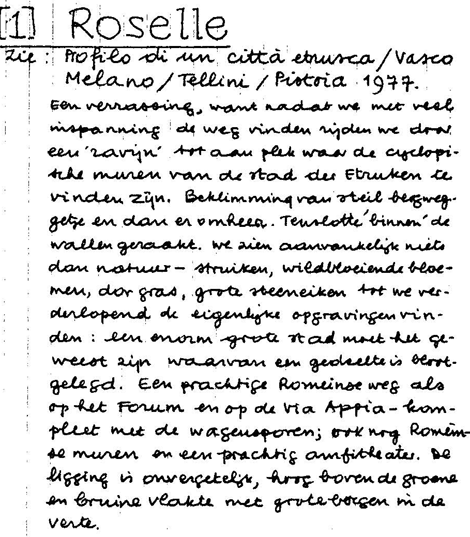 [1] Roselle
zie: Profilo di un città etrusca/Vasco
Melano/Tellini/Pistoia 1977.
Een verrassing, want nadat we met veel
inspanning de weg vinden rijden we door
een 'ravijn' tot aan plek waar de cyclopi-
sche muren van de stad der Etrusken te
vinden zijn. Beklimming van steil bergweg-
getje en dan er omheen. Tenslotte 'binnen' de
wallen geraakt. We zien aanvankelijk niets
dan natuur - struiken, wildbloeiende bloe-
men, dor gras, grote steeneiken tot we ver-
derlopend de eigenlijke opgravingen vin-
den: een enorm grote stad moet het ge-
weest zijn waarvan een gedeelte is bloot-
gelegd. Een prachtige Romeinse weg als
op het Forum en op de Via Appia - kom-
pleet met de wagensporen; ook nog Romein-
se muren en een prachtig amfitheater. De
ligging is onvergetelijk, hoog boven de groene
en bruine vlakte met grote bergen in de
verte.